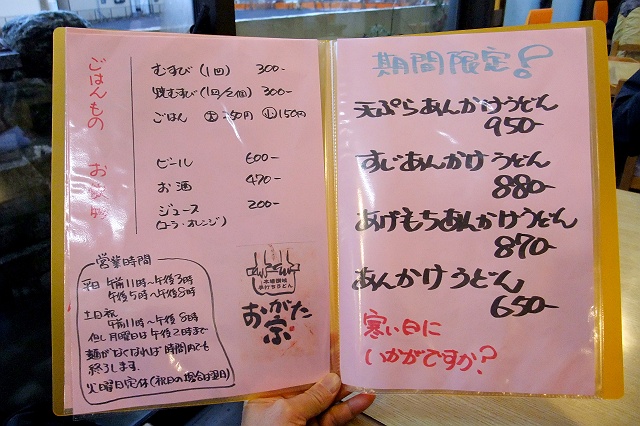 ごはんもの
むすび(1コ) 300-
焼むすび(1コ/2個) 300-
ごはん 大 250円 小 150円
お飲物
ビール 600-
お酒 470-
ジュース 200-
(コーラ・オレンジ)
営業時間
平日 午前11時〜午後3時
午後5時〜午後8時
土日祝
午前11時〜午後8時
但し月曜日は午後2時まで
麺がなくなれば時間内でも
終了します。
火曜日定休(祝日の場合は翌日)
本場讃岐
手打ちうどん
おがた屋
期間限定!
天ぷらあんかけうどん
950-
すじあんかけうどん
880-
あげもちあんかけうどん
870-
あんかけうどん
650-
寒い日に
いかがですか?